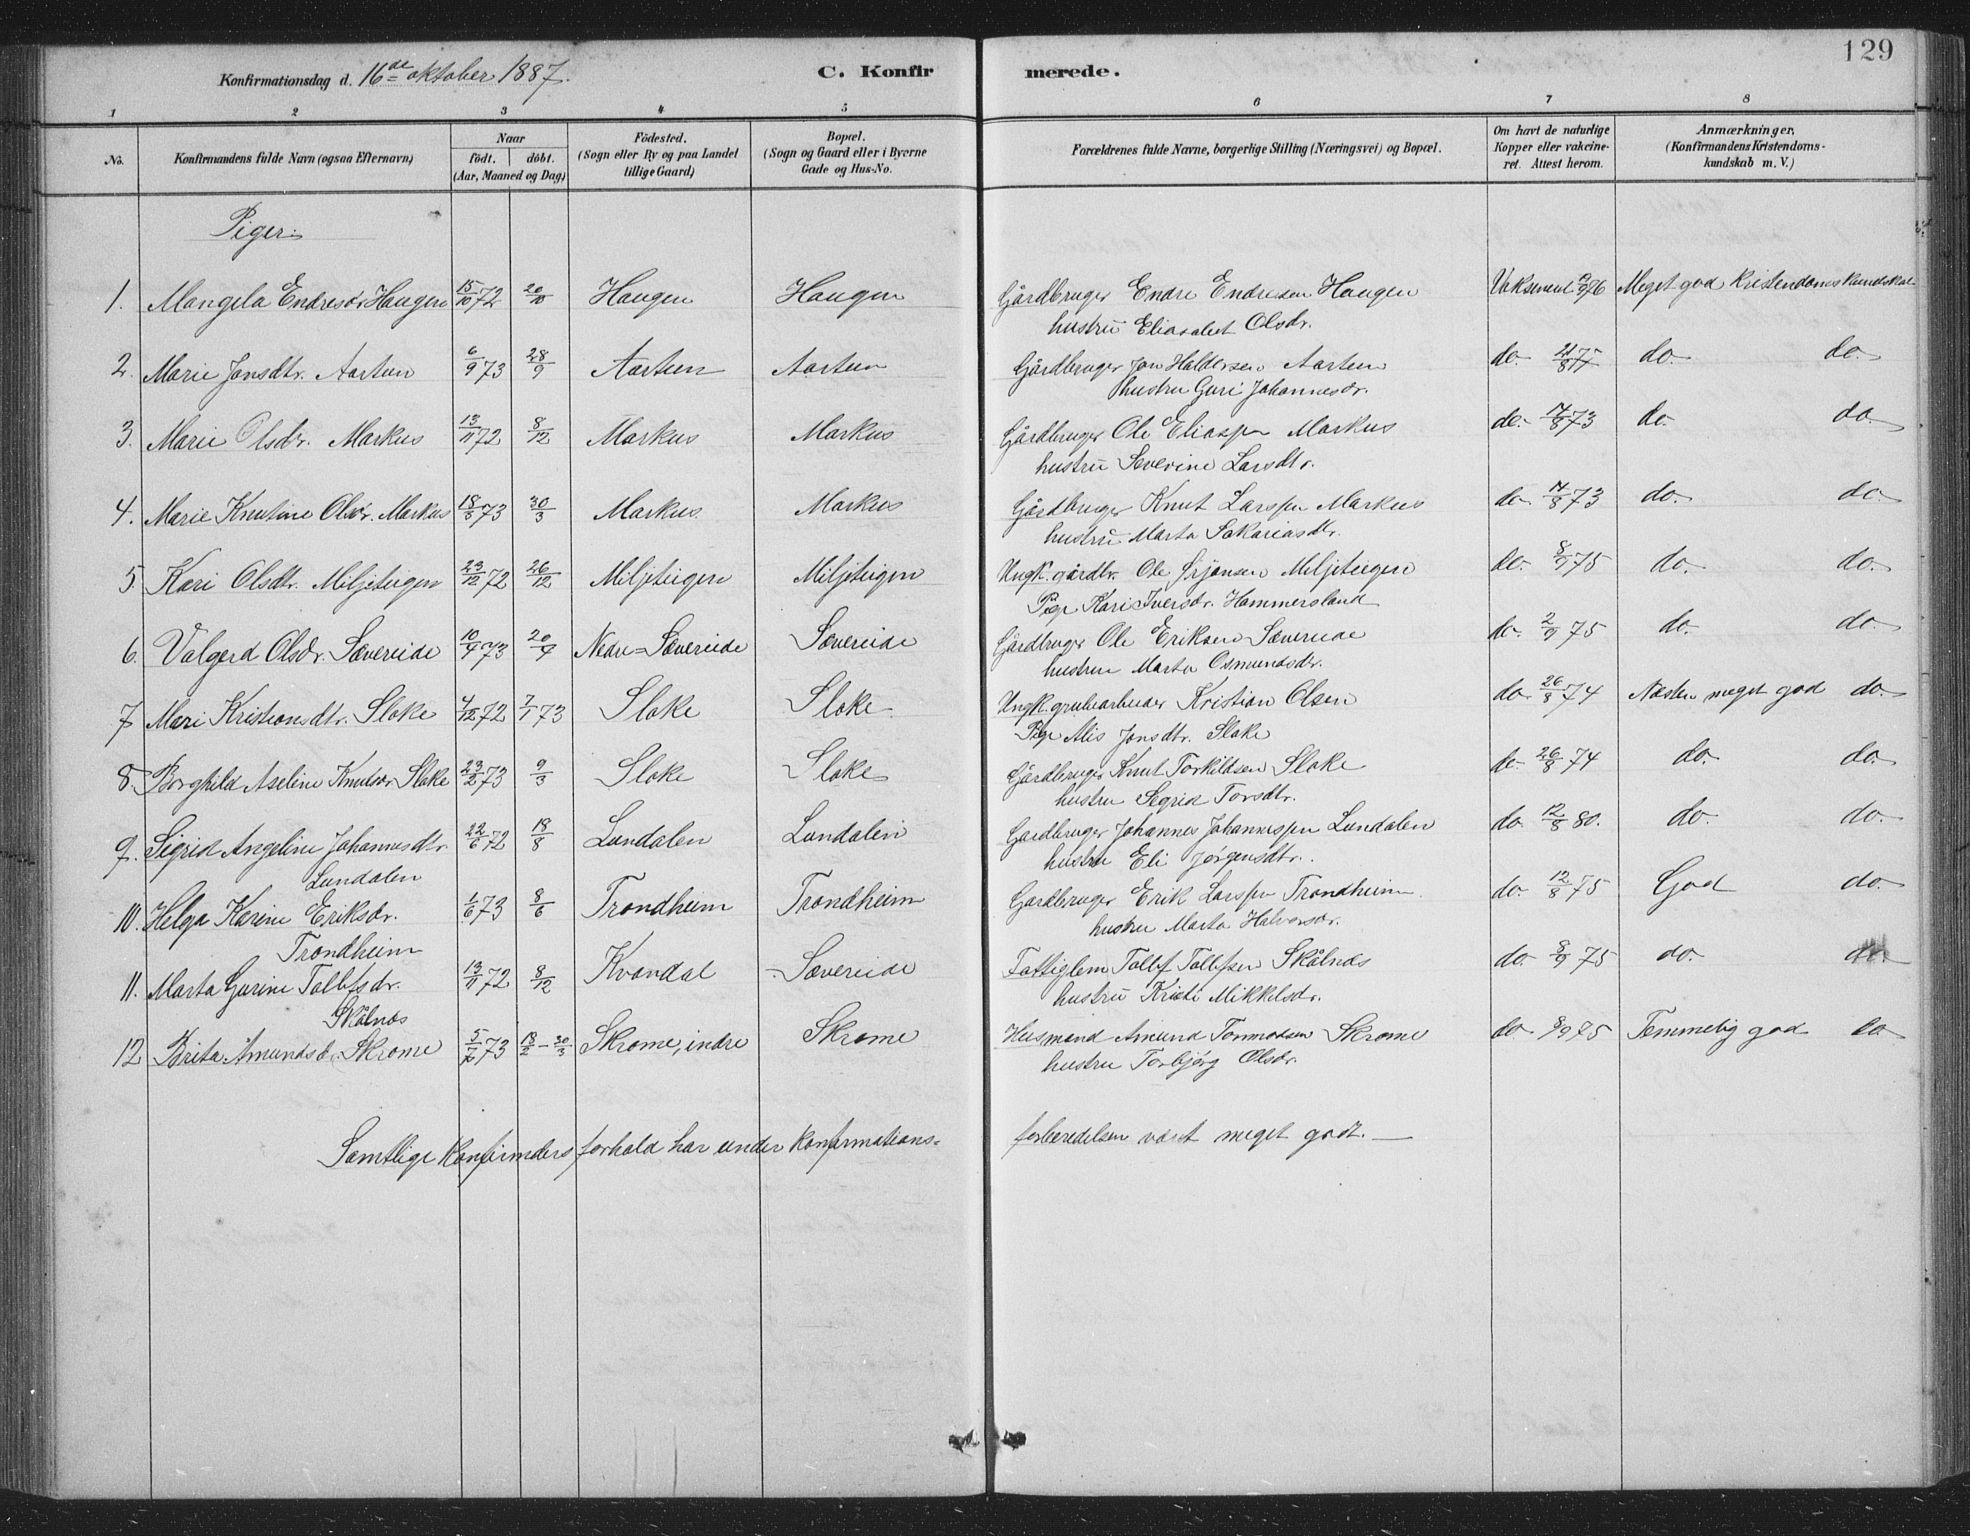 129
Konfirmationsdag d. 16de oktober 1887. C. Konfirmerede.
1 2 3 4 5 6 7 8
No.
Konfirmandens fulde Navn (ogsaa Efternavn)
Naar
födt. döbt.
(Aar, Maaned og Dag)
Födested.
(Sogn eller By og paa Landet
tillige Gaard)
Bopæl.
(Sogn og Gaard eller i Byerne
Gade og Hus-No.
Forældrenes fulde Navne, borgerlige Stilling (Næringsvei) og Bopæl.
Om havt de naturlige
Kopper eller vakcine-
ret. Attest herom.
Anmærkninger.
(Konfirmandens Kristendoms-
kundskab m. V.)
Piger:
1. Mangela Endresdr Haugen 15/10 72 20/10 Haugen Haugen Gårdbruger Endre Endresen Haugen Meget god Kristendomskundskab
hustru Olsdr.
2. Marie Jonsdtr. Aartun 6/9 73 28/9 Aartun Aartun Gårdbruger Jon Haldorsen Aartun do. do. do.
hustru Guri Johannesdr.
3. Marie Olsdr. Markus 13/11 72 8/12 Markus Markus Gårdbruger Ole Eliassen Markus do. 17/8 73 do. do.
hustru Severine Larsdtr.
4. Marie Knutine Olsdr. Markus 18/3 73 30/3 Markus. Markus Gårdbruger Knut Larssen Markus do. 17/8 73 do. do.
hustru Marta Sakariasdtr.
5. Kari Olsdtr. Miljeteigen 23/12 72 26/12 Miljeteigen Miljeteigen Ungk. gårdbr. Ole Miljeteigen do. 8/9 75 do. do.
Pige Kari Iversdr. Hammersland
6. Valgerd Olsdr. Sævereide 10/9 73 20/9 Nedre=Sævereide Sævereide Gårdbruger Ole Eriksen Sævereide do. 2/9 75 do. do.
hustru Marta Osmundsdr.
7 Mari Kristiansdtr. Sloke 4/12 72 7/1 73 Sloke Sloke Ungk. grubearbeider Kristian Olsen do. 26/8 74 Næsten meget god do.
Pige Alis Jonsdtr. Sloke
8. Borghild Aseline Knutsdr Sloke 23/2 73 9/3 Sloke Sloke Gårdbruger Knut Torkildsen Sloke do. 26/8 74 do. do.
hustru Segrid Torsdtr.
9. Sigrid Angeline Johannesdtr. 22/6 72 18/8 Lundalen Lundalen Gårdbruger Johannes Johannessen Lundalen do. 12/8 80. do. do.
Lundalen hustru Eli Jørgensdtr.
10. Helga Karine Eriksdr. 1/6 73 8/6 Trondheim Trondheim Gårdbruger Erik Larssen Trondheim do. 12/8 75 God do.
Trondheim hustru Marta Halvorsdr.
11. Marta Gurine Tollefsdr. 13/11 72 8/12 Kvandal Sævereide Fattiglem Tollef Tollefsen Skålnæs do. 8/9 75 do. do.
Skålnæs hustru Kristi Mikkelsdr.
12 Brita Amundsd. Skrome 73 Skrome, indre Skrome Husmand Amund Tormodsen Skrome do. 8/9 75 Temmelig god do
hustru Torbjørg Olsdr.
Samtlige Konfirmders forhold har under Konfirmations= forberedelsen vært meget godt. —